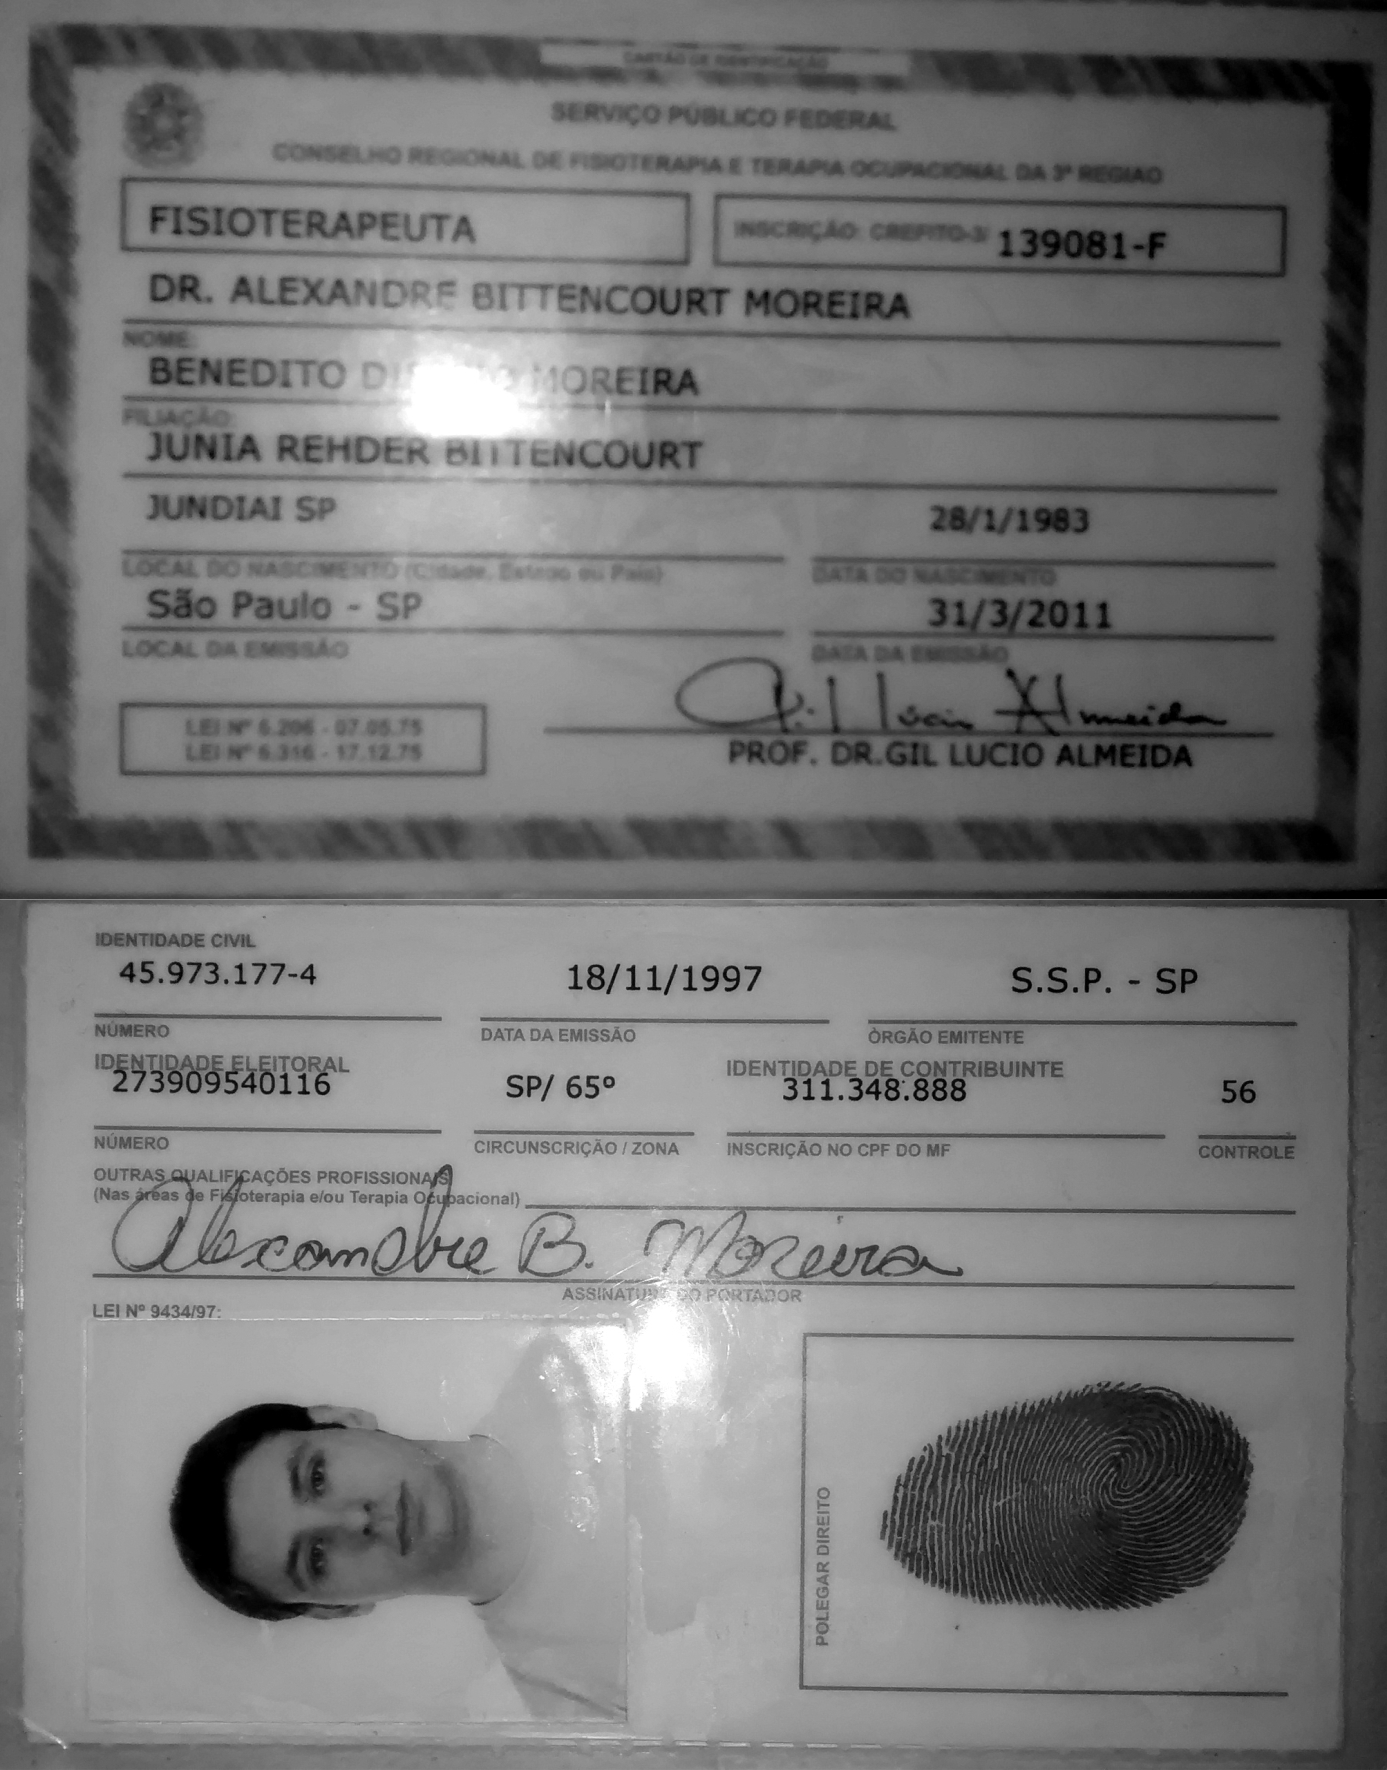 CARTÃO DE IDENTIFICAÇÃO
SERVIÇO PÚBLICO FEDERAL
CONSELHO REGIONAL DE FISIOTERAPIA E TERAPIA OCUPACIONAL DA 3ª REGIAO
FISIOTERAPEUTA
INSCRIÇÃO: CREFITO-3/ 139081-F
DR. ALEXANDRE BITTENCOURT MOREIRA
NOME:
BENEDITO MOREIRA
FILIAÇÃO:
JUNIA REHDER BITTENCOURT
JUNDIAI SP 28/1/1983
LOCAL DO NASCIMENTO (Cidade, Estado ou País) DATA DO NASCIMENTO
São Paulo - SP 31/3/2011
LOCAL DA EMISSÃO DATA DA EMISSÃO
Gil Lúcio Almeida
LEI Nº 6.206 - 07.05.75
LEI Nº 6.316 - 17.12.75
PROF. DR.GIL LUCIO ALMEIDA
IDENTIDADE CIVIL
45.973.177-4 18/11/1997 S.S.P. - SP
NÚMERO DATA DA EMISSÃO ÓRGÃO EMITENTE
IDENTIDADE ELEITORAL IDENTIDADE DE CONTRIBUINTE
273909540116 SP/ 65º 311.348.888 56
NÚMERO CIRCUNSCRIÇÃO / ZONA INSCRIÇÃO NO CPF DO MF CONTROLE
OUTRAS QUALIFICAÇÕES PROFISSIONAIS
(Nas áreas de Fisioterapia e/ou Terapia Ocupacional)
Alexandre B. Moreira
ASSINATURA DO PORTADOR
LEI Nº 9434/97:
POLEGAR DIREITO